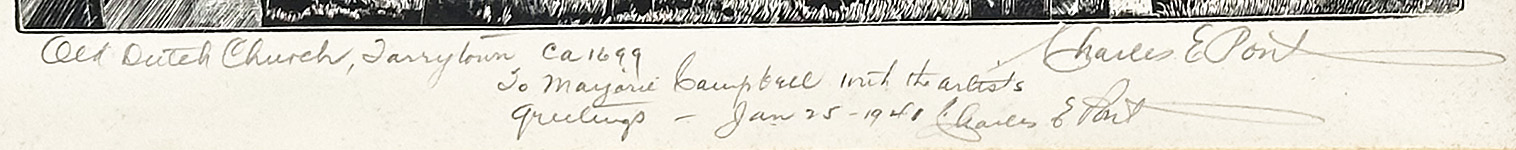 Old Dutch Church, Tarrytown Ca 1699 Charles E Pont
To Marjorie Campbell with the artist's
greetings - Jan 25 - 1941 Charles E Pont